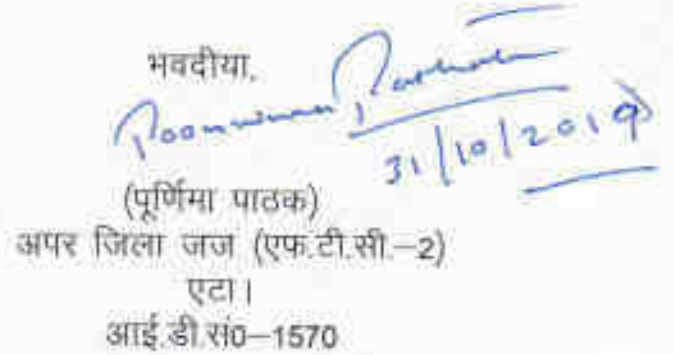 भवदीया,
Poornima Pathak
31/10/2019
(पूर्णिमा पाठक)
अपर जिला जज (एफ.टी.सी.–2)
एटा।
आई.डी.सं0–1570